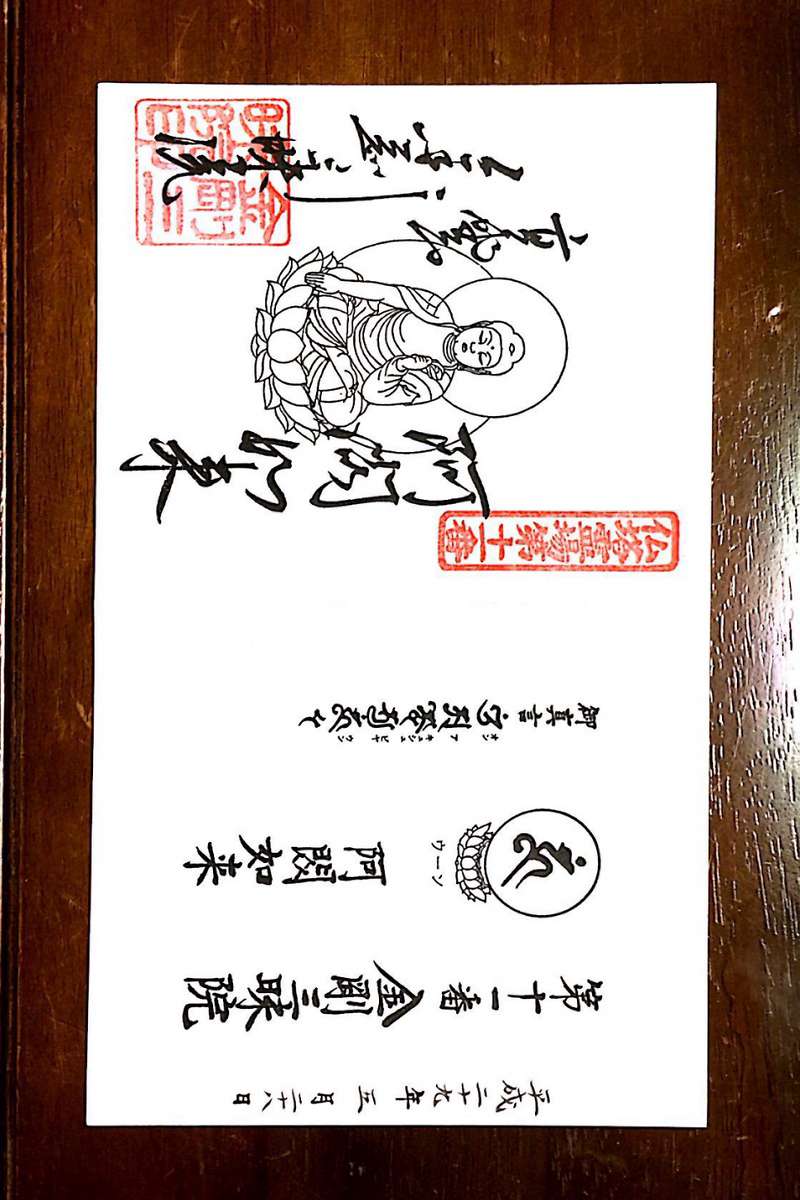 平成二十九年 五月二十八日
第十一番 金剛三昧院
ウーン
阿閦如来
御真言
オン アキシュビヤ ウン
仏塔霊場第十一番
阿閦如来
高野山
金剛三昧院